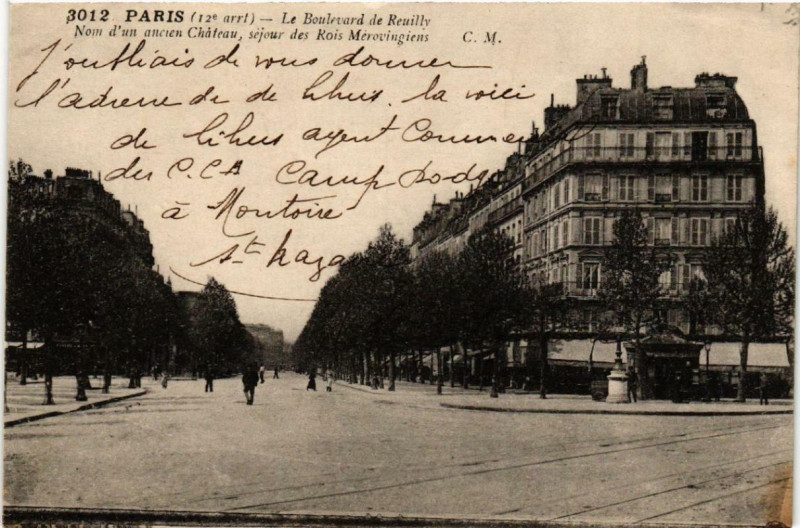 3012 PARIS (12e arrt) — Le Boulevard de Reuilly
Nom d'un ancien Château, séjour des Rois Mérovingiens C. M.
J'oubliais de vous donner
l'adresse de de Lihus. la voici
de Lihus agent Commer
des P.C.A Camp
à Montoire
St Naza